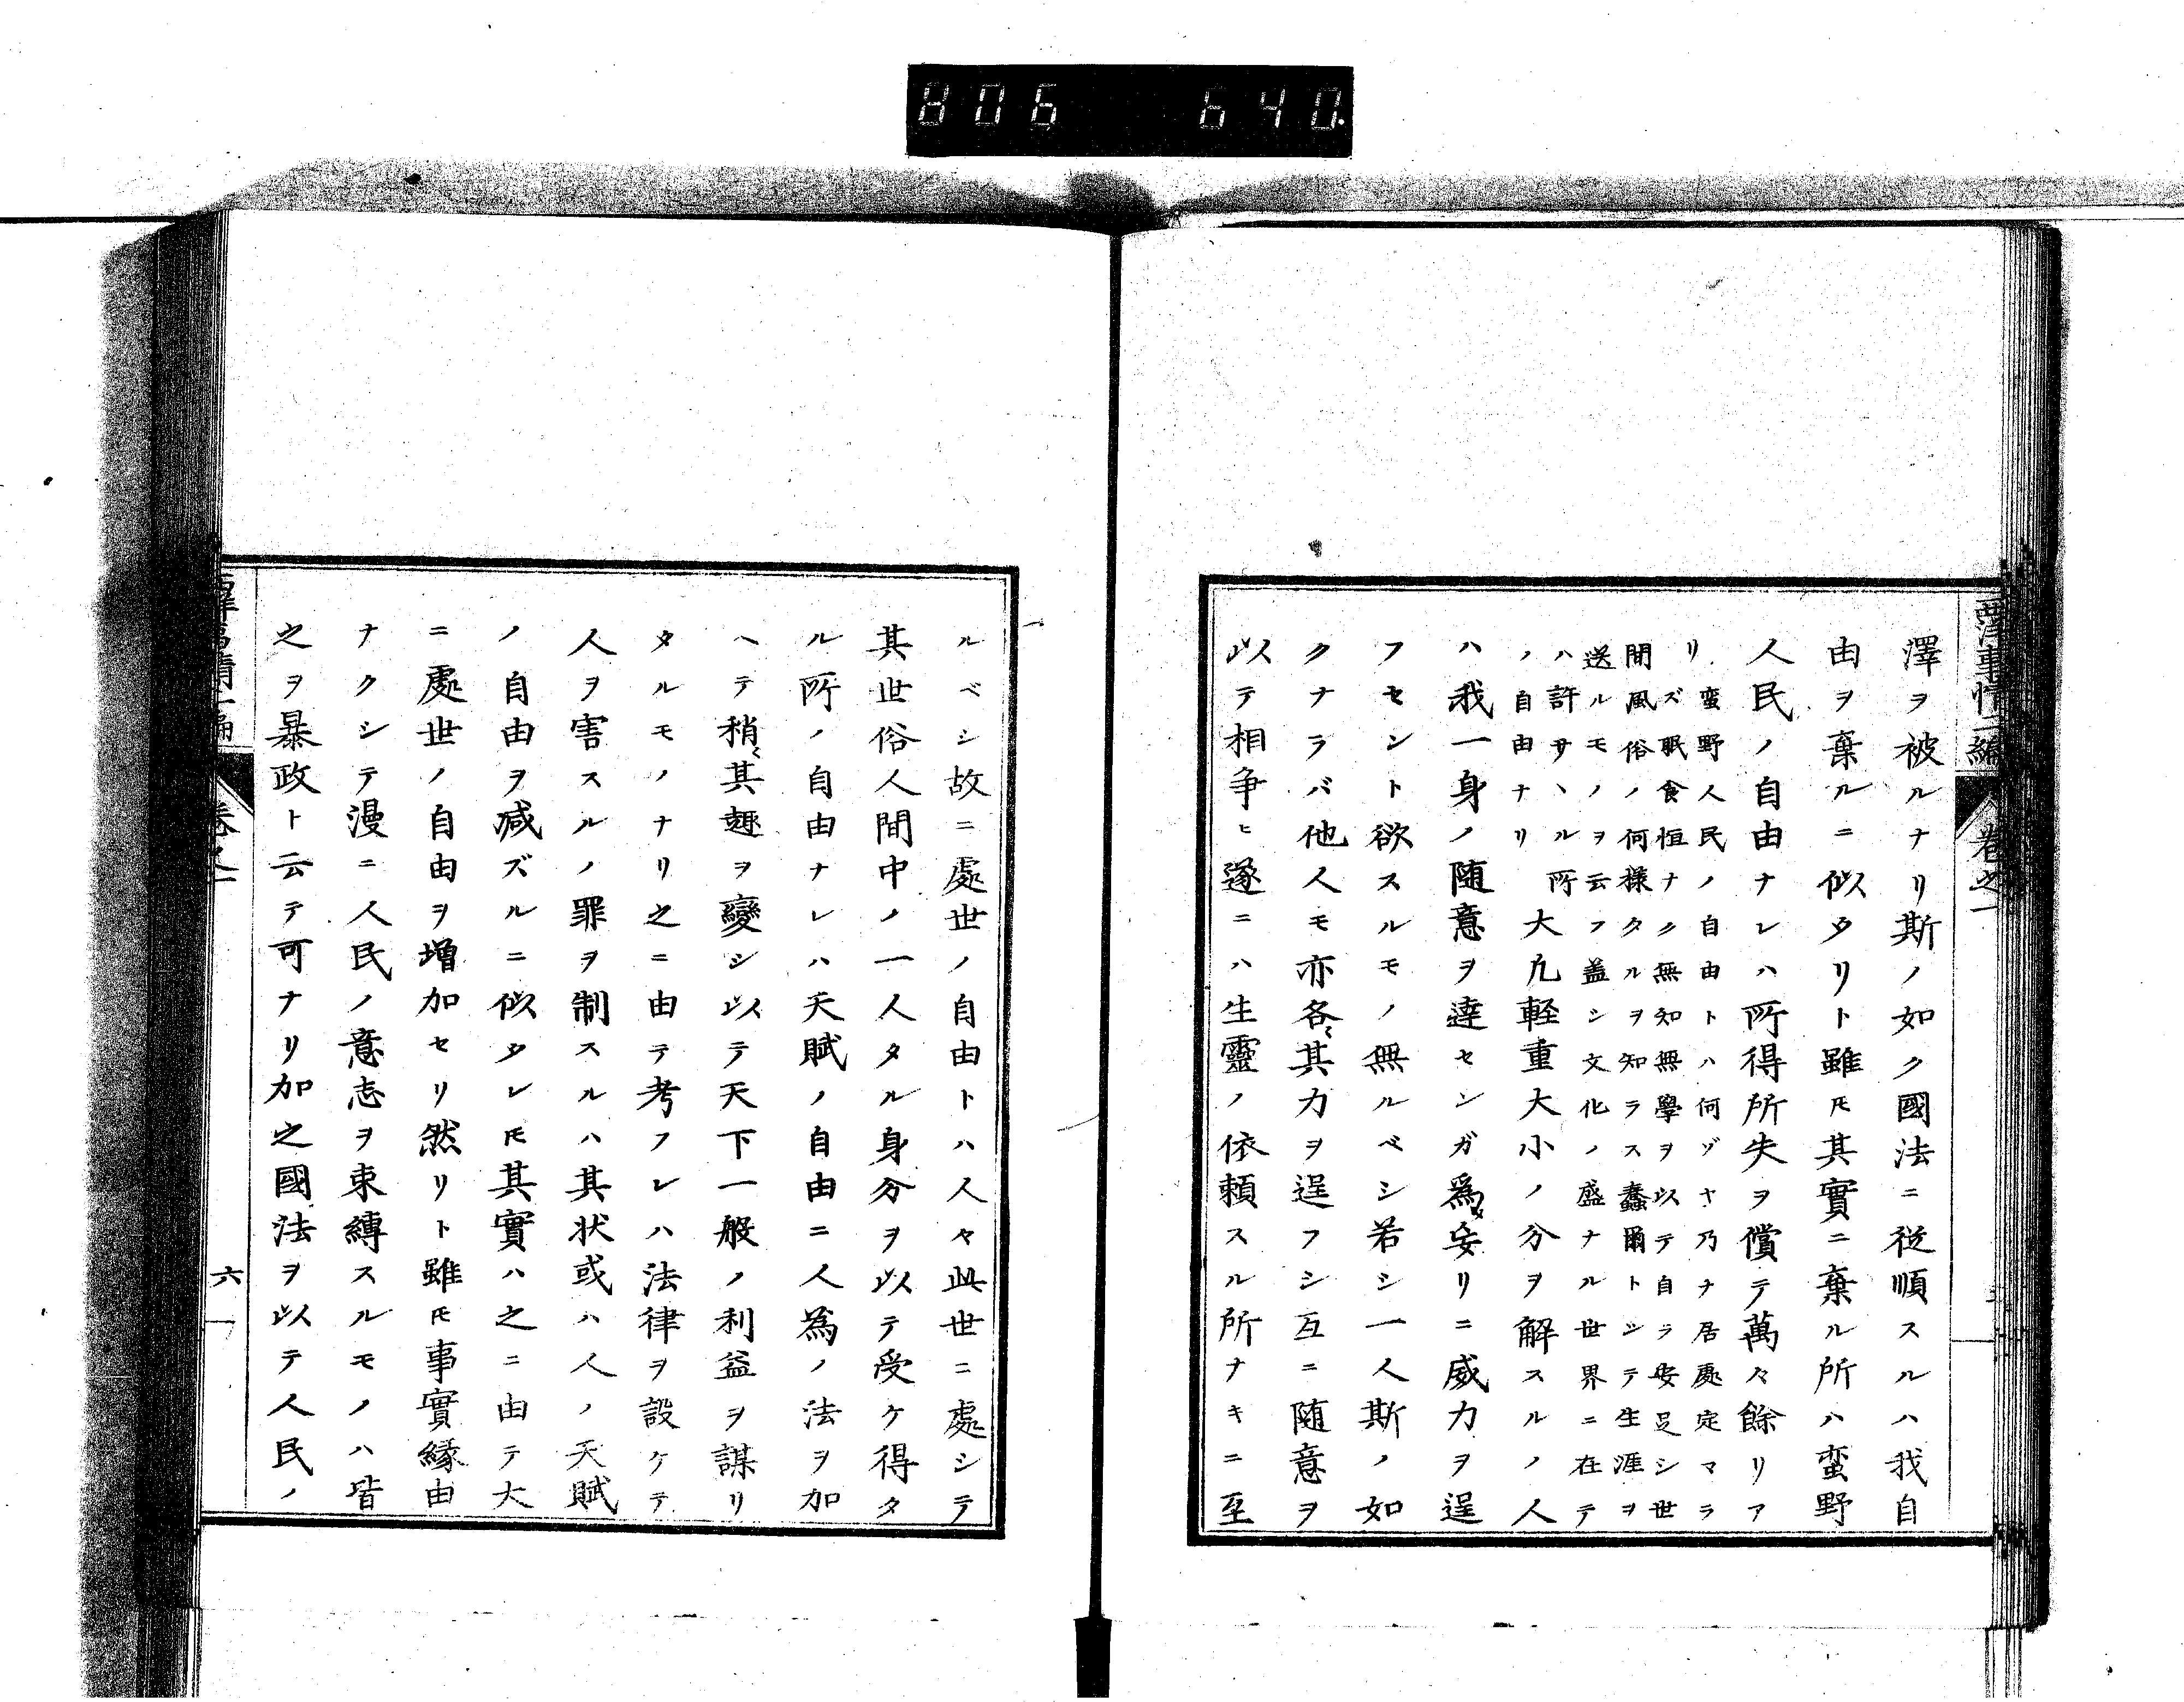 806 640.
西洋事情二編 卷之一
澤ヲ被ルナリ斯ノ如ク國法ニ從順スルハ我自
由ヲ棄ルニ似タリト雖𪜈其實ニ棄ル所ハ蛮野
人民ノ自由ナレハ所得所失ヲ償テ萬々餘リア
リ
蛮野人民ノ自由トハ何ゾヤ乃ナ居處定マラ
ズ眠食恒ナク無知無學ヲ以テ自ラ安足シ世
間風俗ノ何様タルヲ知ラス蠢爾トシテ生涯ヲ
送ルモノヲ云フ盖シ文化ノ盛ナル世界ニ在テ
ハ許サヽル所
ノ自由ナリ
大凢軽重大小ノ分ヲ解スルノ人
ハ我一身ノ随意ヲ達センガ爲メ妄リニ威力ヲ逞
フセント欲スルモノ無ルベシ若シ一人斯ノ如
クナラバ他人モ亦各〻其力ヲ逞フシ互ニ随意ヲ
以テ相争ヒ遂ニハ生靈ノ依頼スル所ナキニ至
ルベシ故ニ處世ノ自由トハ人々此世ニ處シテ
其世俗人間中ノ一人タル身分ヲ以テ受ケ得タ
ル所ノ自由ナレハ天賦ノ自由ニ人為ノ法ヲ加
ヘテ稍〻其趣ヲ變シ以テ天下一般ノ利益ヲ謀リ
タルモノナリ之ニ由テ考フレハ法律ヲ設ケテ
人ヲ害スルノ罪ヲ制スルハ其状或ハ人ノ天賦
ノ自由ヲ减ズルニ似タレ𪜈其實ハ之ニ由テ大
ニ處世ノ自由ヲ增加セリ然リト雖𪜈事實縁由
ナクシテ漫ニ人民ノ意志ヲ束縛スルモノハ皆
之ヲ暴政ト云テ可ナリ加之國法ヲ以テ人民ノ
西洋事情二編 卷之一
六